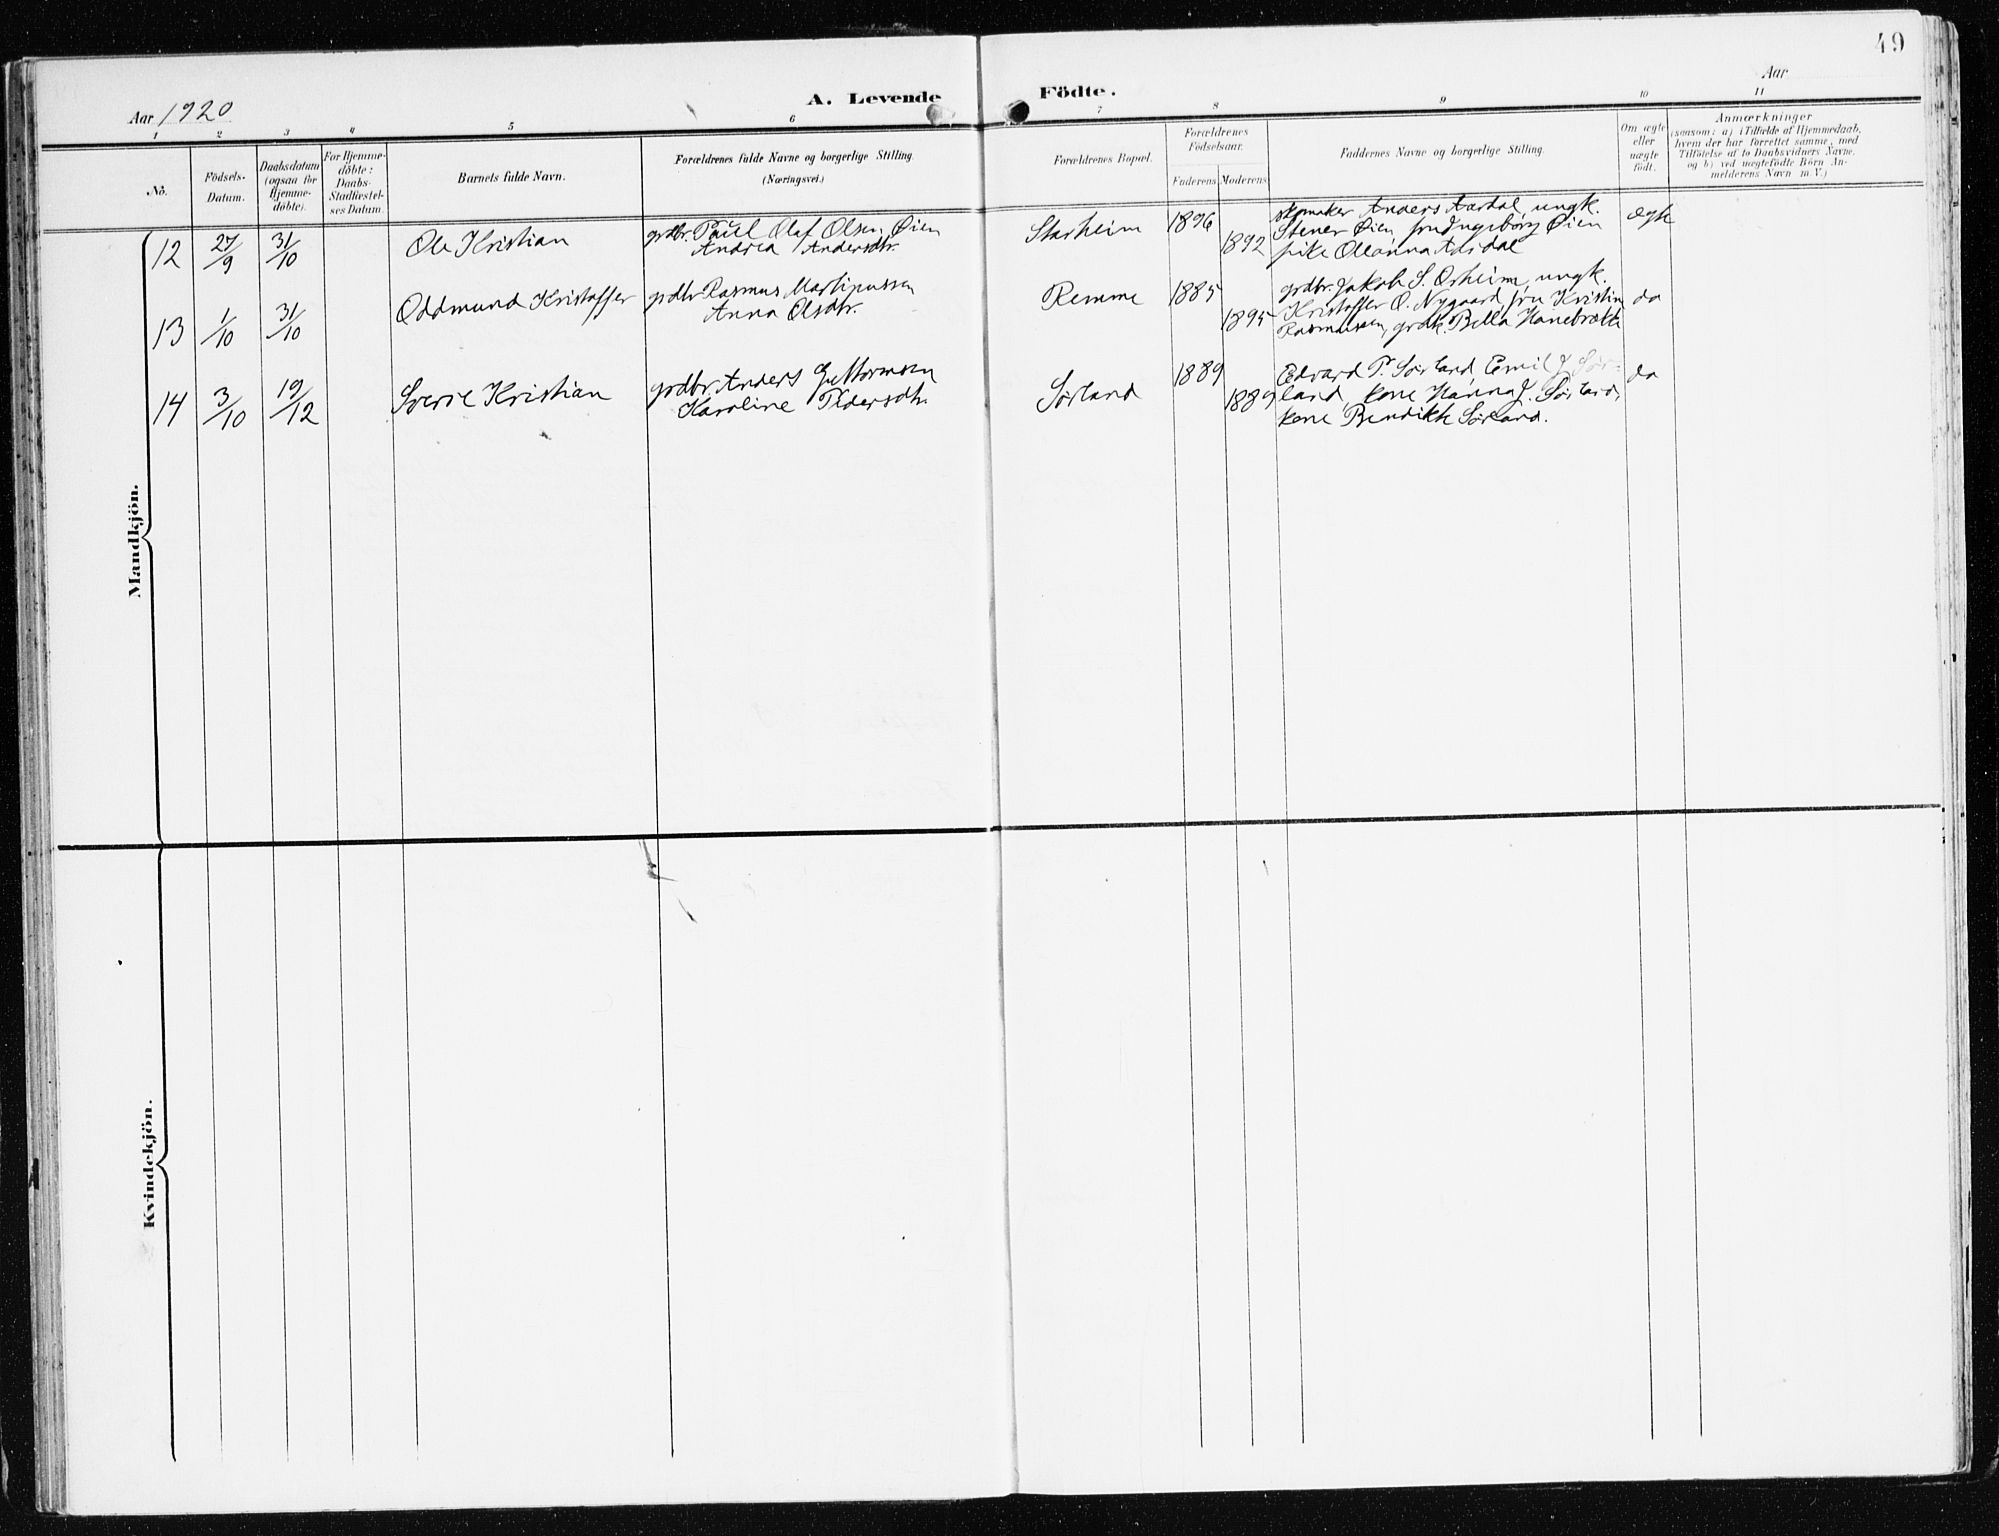 49
Aar 1920
A. Levende Födte.
Aar
1 2 3 4 5 6 7 8 9 10 11
No.
Födsels-
Datum.
Daabsdatum
(ogsaa for
Hjemme-
döbte).
For Hjemme-
döbte:
Daabs-
Stadfæstel-
ses Datum.
Barnets fulde Navn.
Forældrenes fulde Navne og borgerlige Stilling.
(Næringsvei.)
Forældrenes Bopæl.
Forældrenes
Födselsaar.
Faderens Moderens
Faddernes Navne og borgerlige Stilling.
Om ægte
eller
uægte
födt.
Anmærkninger
(saasom: a) i Tilfælde af Hjemmedaab,
hvem der har forrettet samme, med
Tilföielse af to Daabsvidners Navne,
og b) ved uægtefödte Börn An-
melderens Navn m. V.)
Mandkjön.
12 27/9 31/10 Ole Kristian
grdbr. Paul Olaf Olsen Øien
Andrea Andersdtr.
Starheim 1896 1892
skomaker Anders Aardal, ungk.
Stener Øien, fru Ingeborg Øien
pike Oleanna Aardal
ægte
13 1/10 31/10 Oddmund Kristoffer
grdbr Rasmus Martinussen
Anna Olsdtr.
Remme 1885 1895
grdbr. Jakob S. Orheim, ungk.
Kristoffer O. Nygaard, fru Kristin
Rasmussen, grdk. Bella Hanebrække
do
14 3/10 19/12 Sverre Kristian
grdbr. Anders Guttormsen
Karoline Pedersdtr.
Sørland 1889 1889
Edvard P. Sørland, Emil J. Sør-
land, kone Hanna J. Sørland,
kone Bendikte Sørland.
do
Kvindekjön.